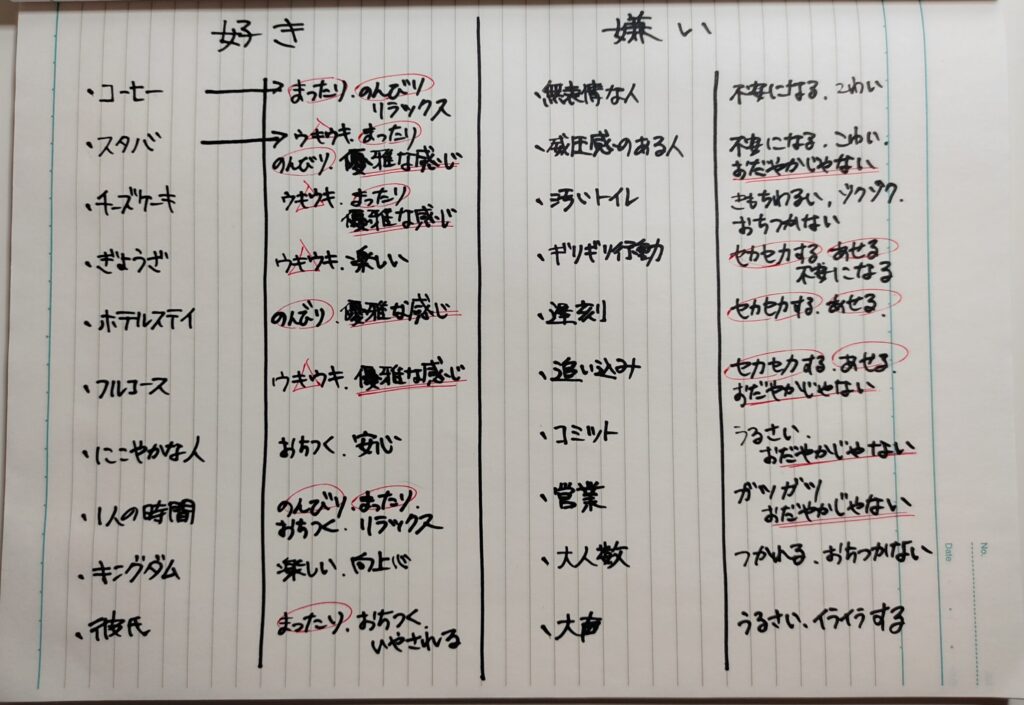 好き
・コーヒー → まったり.のんびり
リラックス
・スタバ → ウキウキ.まったり
のんびり.優雅な感じ
・チーズケーキ ウキウキ.まったり
優雅な感じ
・ぎょうざ ウキウキ.楽しい
・ホテルステイ のんびり.優雅な感じ
・フルコース ウキウキ.優雅な感じ
・にこやかな人 おちつく.安心
・1人の時間 のんびり.まったり.
おちつく.リラックス
・キングダム 楽しい.向上心
・彼氏 まったり.おちつく.
いやされる
嫌い
・無表情な人 不安になる.こわい
・威圧感のある人 不安になる.こわい.
おだやかじゃない
・汚いトイレ きもちわるい,ゾクゾク.
おちつかない
・ギリギリ行動 セカセカする.あせる
不安になる
・遅刻 セカセカする.あせる.
・追い込み セカセカする.あせる.
おだやかじゃない
・コミット うるさい.
おだやかじゃない
・営業 ガツガツ
おだやかじゃない
・大人数 つかれる.おちつかない
・大声 うるさい.イライラする
No.
Date